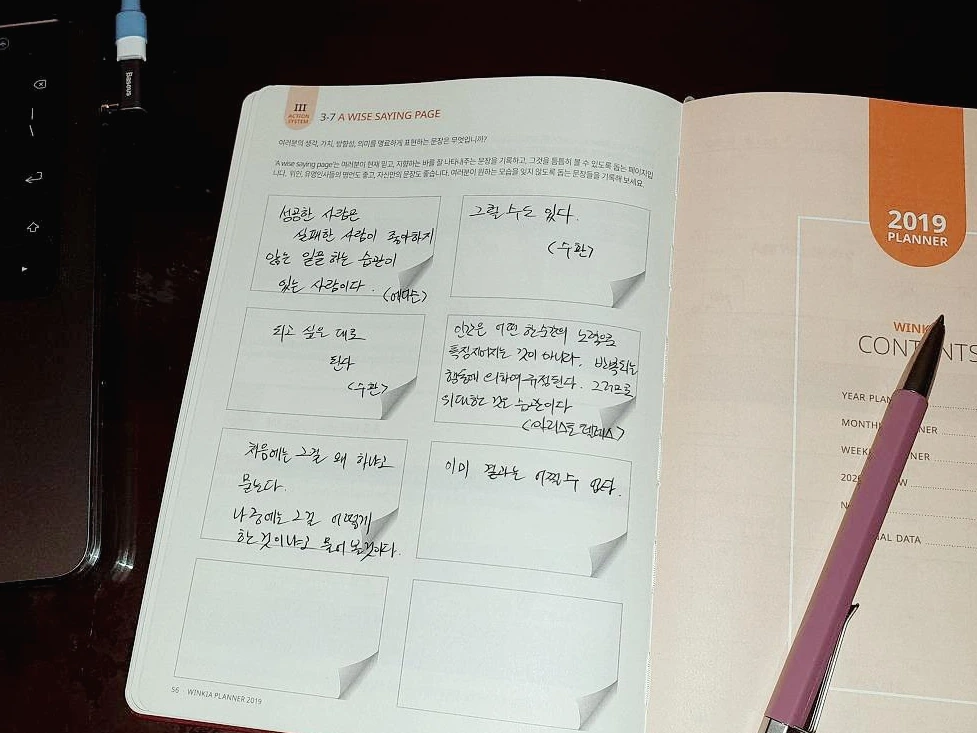 III
ACTION
SYSTEM
3-7 A WISE SAYING PAGE
여러분의 생각, 가치, 방향성, 의미를 명료하게 표현하는 문장은 무엇입니까?
'A wise saying page'는 여러분이 현재 믿고, 지향하는 바를 잘 나타내주는 문장을 기록하고, 그것을 틈틈히 볼 수 있도록 돕는 페이지입
니다. 위인, 유명인사들의 명언도 좋고, 자신만의 문장도 좋습니다. 여러분이 원하는 모습을 잊지 않도록 돕는 문장들을 기록해 보세요.
성공한 사람은
실패한 사람이 좋아하지
않는 일을 하는 습관이
있는 사람이다.
<에디슨>
그럴 수도 있다.
<수환>
되고 싶은 대로
된다
<수환>
인간은 어떤 한순간의 노력으로
특징지어지는 것이 아니라, 반복되는
행동에 의하여 규정된다. 그러므로
위대한 것은 습관이다
<아리스토텔레스>
처음에는 그걸 왜 하냐고
묻는다.
나중에는 그걸 어떻게
한 것이냐고 물어볼 것이다.
이미 결과는 어쩔 수 없다.
56
WINKIA PLANNER 2019
2019
PLANNER
WINK
CONTENTS
YEAR PLAN
MONTH NER
WEEK NNER
AL DATA
Baseus